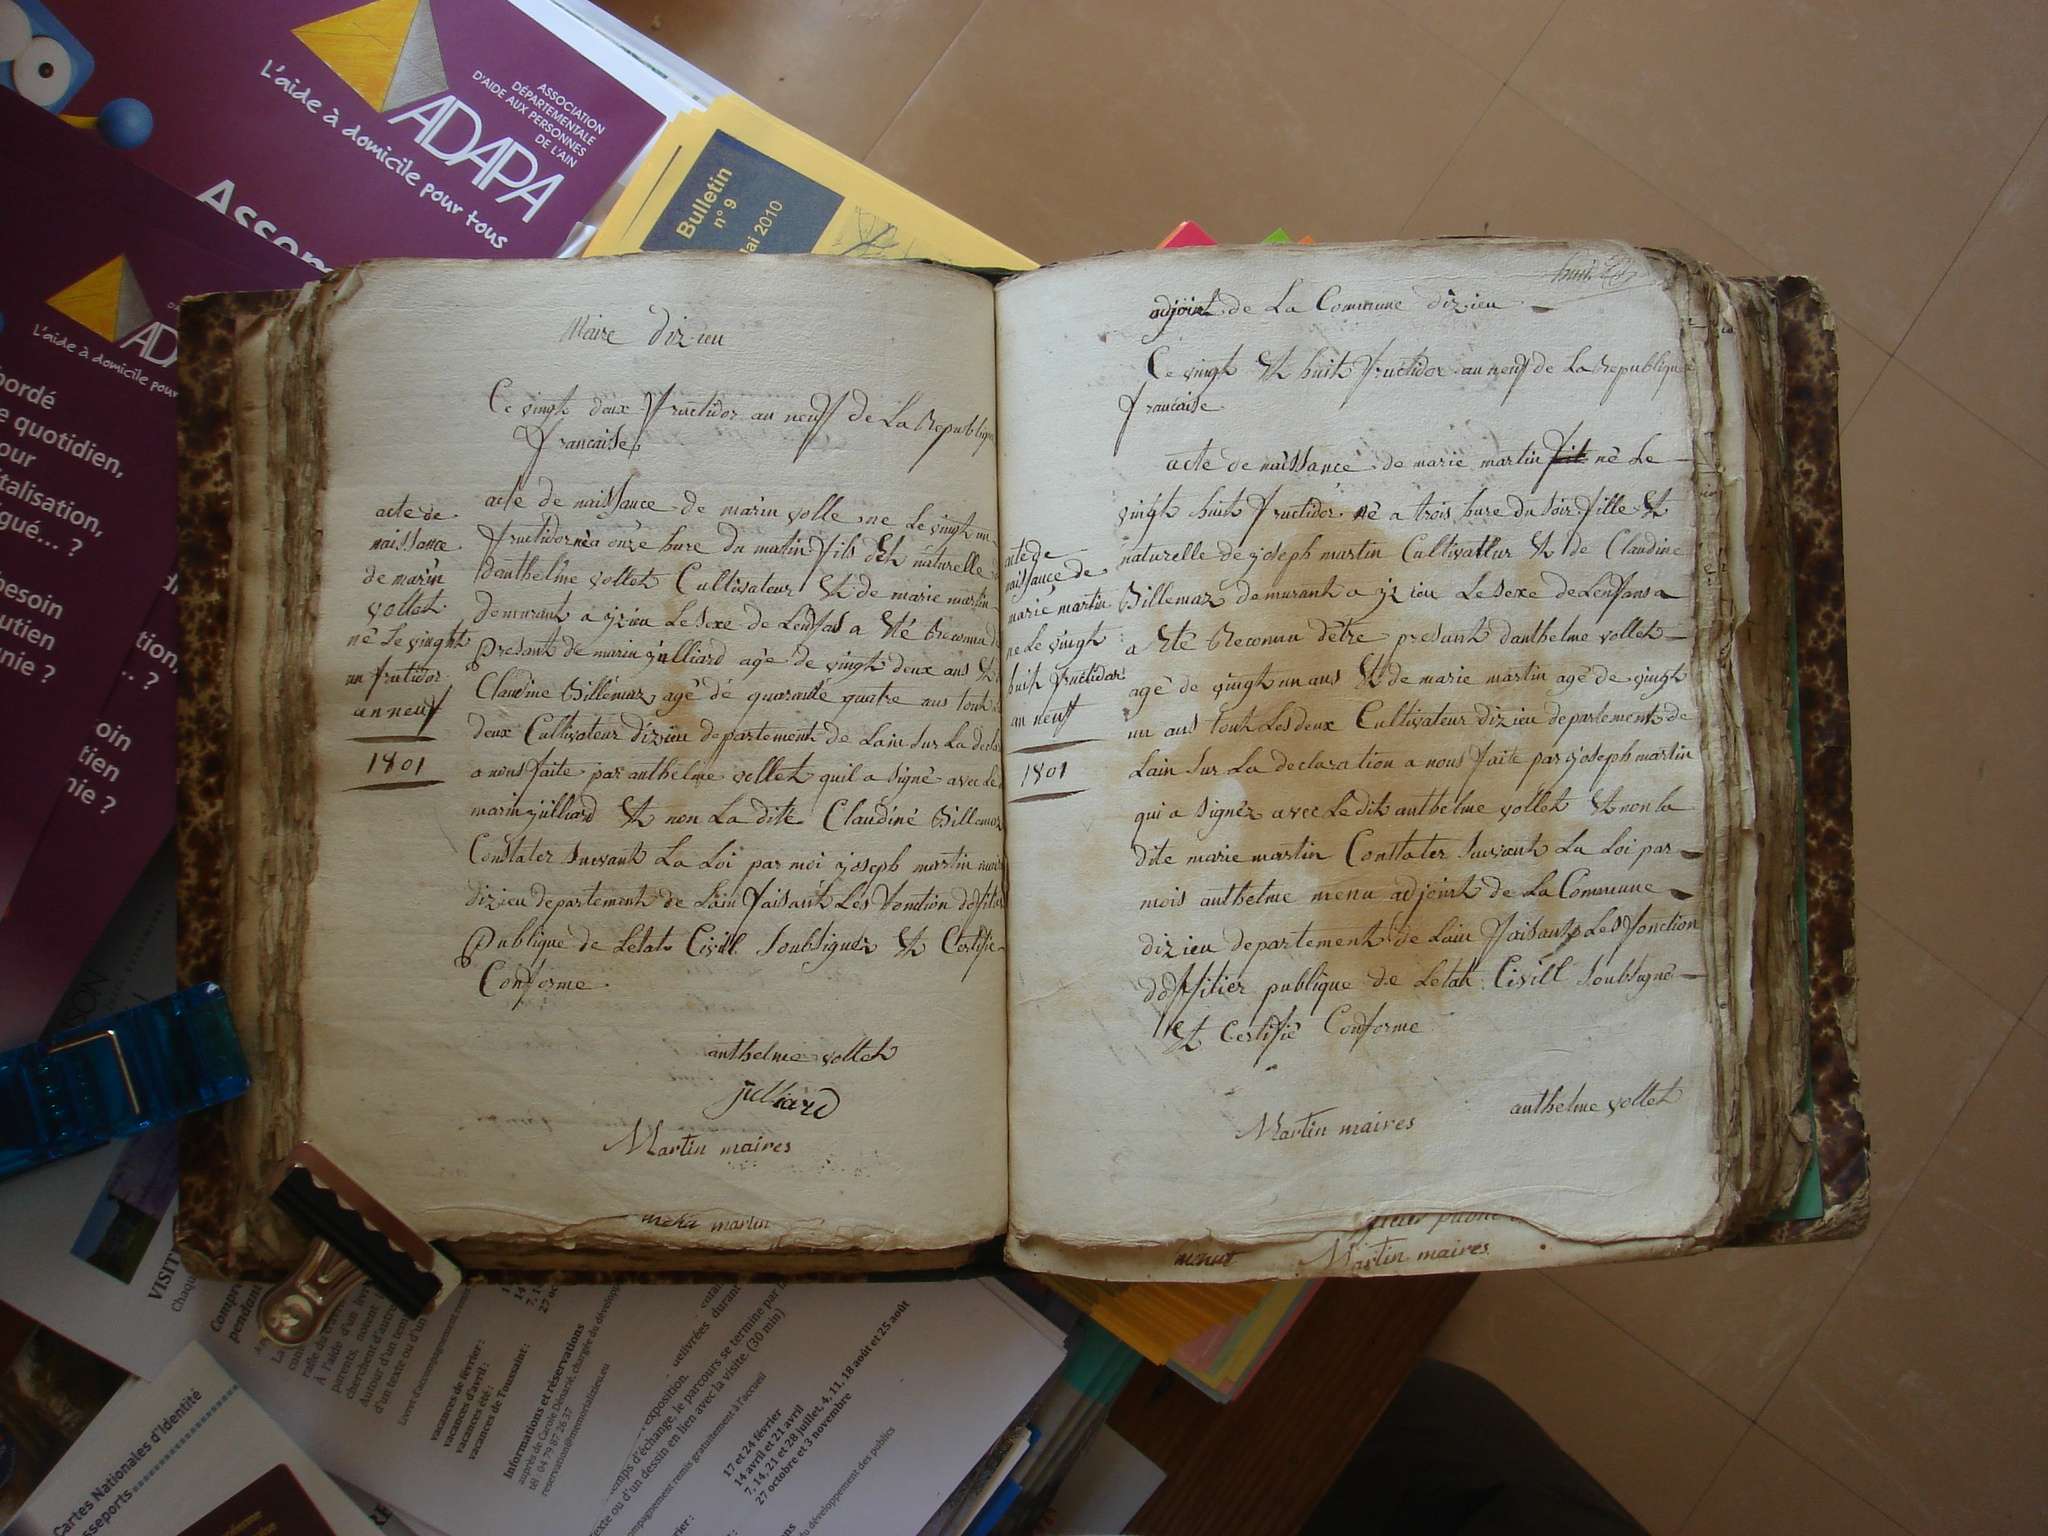 ASSOCIATION
DÉPARTEMENTALE
D'AIDE AUX PERSONNES
DE L'AIN
ADAPA
L'aide à domicile pour tous
Bulletin
n° 9
Mai 2010
L'aide à domicile pour
bordé
e quotidien,
our
talisation,
gué... ?
besoin
utien
nie ?
tion,
.. ?
oin
tien
nie ?
Maire dizieu
Ce vingt deux fructidor an neuf de La Republique
francaise
acte de
naissance
de marin
vollet
né Le vinght
un frutidor
an neuf
1801
acte de naissance de marin volle ne Le vingt un
fructidor né a onze hure du matin fils Et naturelle
danthelme vollet Cultivateur Et de marie martin
demurant a yzieu Le sexe de Lenfas a Eté Reconnu
presant de marin juilliard agé de vingt deux ans Et
Claudine Billemaz agé dé quarante quatre ans tout
deux Cultivateur dizieu departement de Lain sur La decla
a nous faite par anthelme vollet quil a signé avec Le
marin juilliard Et non La dite Claudiné Billemaz
Constater suivant La Loi par moi joseph martin mair
dizieu departement de Lain faisant Les fonction
publique de Letat Civill soubsignez Et Certifie
Conforme
anthelme vollet
juilliard
Martin maires
menu martin
huit
adjoint de La Commune dizieu
Ce vingt Et huit fructidor an neuf de La Republique
francaise
acte de
naissance de
marie martin
ne Le vingt
huit fructidor
an neuf
1801
acte de naissance de marie martin fil né Le
vingt huit fructidor né a trois hure du soir fille Et
naturelle de joseph martin Cultivateur Et de Claudine
Billemaz demurant a yzieu Le sexe de Lenfans a
a Eté Reconnu dêtre presant danthelme vollet
agé de vingt un ans Et de marie martin agé de vingt
un ans tout Les deux Cultivateur dizieu departement de
Lain sur La declaration a nous faite par joseph martin
qui a signéz avec Le dit anthelme vollet Et non la
dite marie martin Constater suivant La Loi par
mois anthelme menu adjoint de La Commune
dizieu departement de Lain faisant Les fonction
doffitier publique de Letat Civill soubsigné
Et Certifié Conforme
anthelme vollet
Martin maires
menu
Martin maires
VISIT
Chaqu
vacances de février :
vacances d'avril :
vacances été :
vacances de Toussaint :
Informations et réservations
auprès de Carole Dénarié, chargée du développe
tél 04 79 87 26 37
reservation@memorializieu.eu
exposition.
temps d'échange, le parcours se termine par
exte ou d'un dessin en lien avec la visite. (30 min)
ompagnement remis gratuitement à l'accueil
17 et 24 février
14 avril et 21 avril
7, 14, 21 et 28 juillet, 4, 11, 18 août et 25 août
27 octobre et 3 novembre
du développement des publics
Cartes Nationales d'Identité
sseports